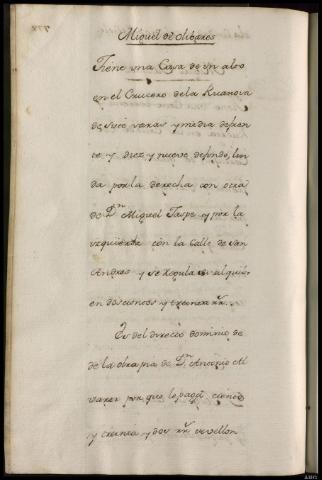 Miguel de
Tiene una Casa de un alto
en el Crucero de la Ruanova
de siete varas y media de fren
te y diez y nueve de fondo, lin
da por la derecha con otra
de Dn Miguel Taspe y por la
yzquierda con la Calle de San
Andres y se Regula su alquiler
en doscientos y treinta rrs.
Es del directo dominio de
de la obra pia de Dn Antonio Al
varez por que le paga ciento
y treinta y dos rrs de vellon